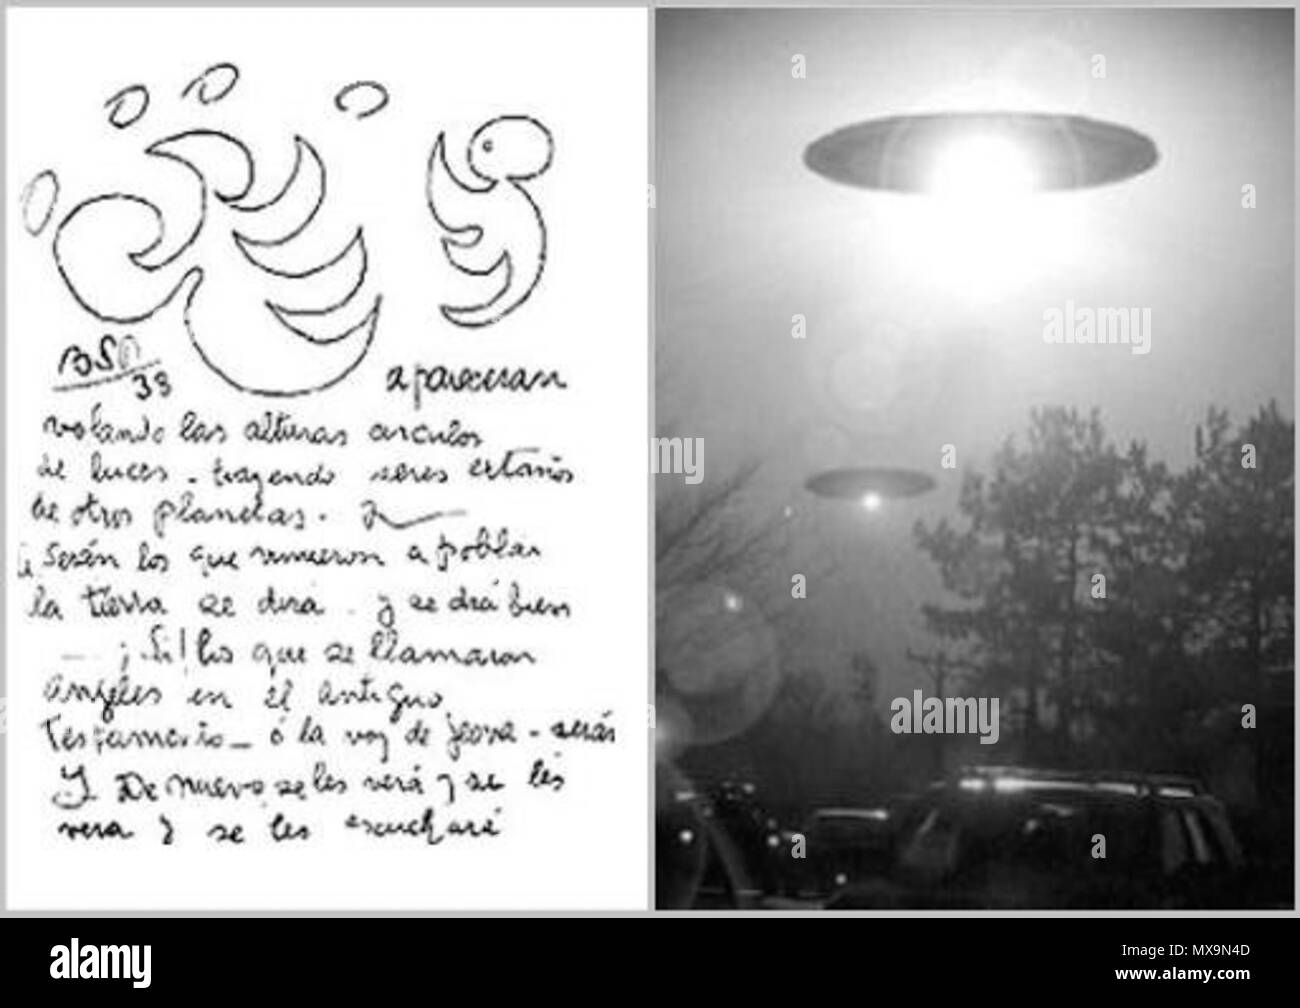 BSP
38
aparecerán
volando las alturas circulos
de luces - trayendo seres extraños
de otros planetas.
serán los que vinieron a poblar
la tierra se dirá - y se dirá bien
¡Si! los que se llamaron
angeles en el antiguo
Testamento - ó la voz de Jeova - serán
Y De nuevo se les verá y se les
vera y se les escuchará
alamy
alamy
alamy
alamy
Image ID: MX9N4D
www.alamy.com